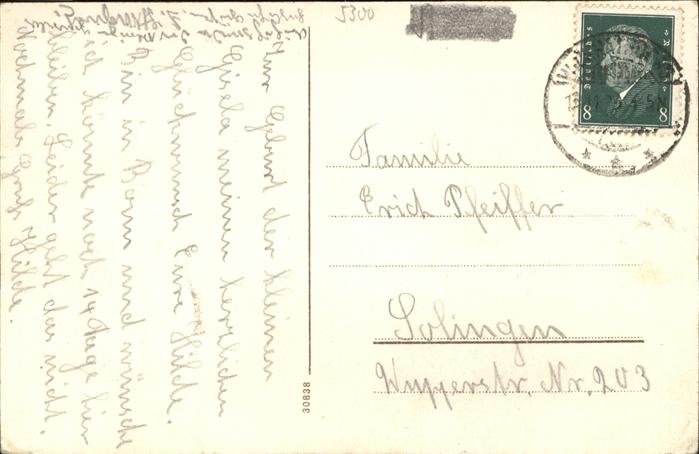 5300
Zur Geburt der kleinen
Gisela meinen herzlichen
Glückwunsch Eure Hilde.
Bin in Bonn und wünsche
ich könnte noch 14 Tage hier
bleiben. Leider geht das nicht.
Nochmals Gruß Hilde.
Deutsches Reich
8 8
Familie
Erich Pfeiffer
Solingen
Wupperstr. Nr. 203
30838